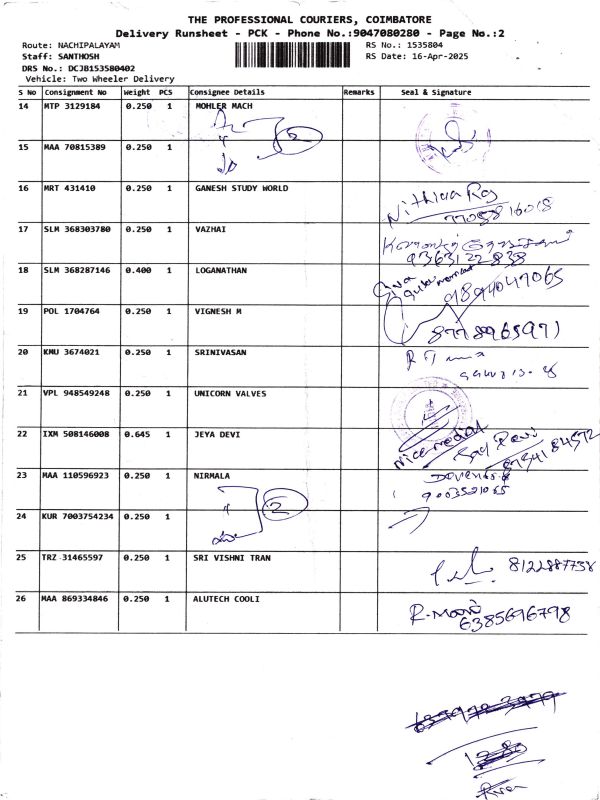 THE PROFESSIONAL COURIERS, COIMBATORE
Delivery Runsheet - PCK - Phone No.:9047080280 - Page No.:2
Route: NACHIPALAYAM RS No.: 1535804
Staff: SANTHOSH RS Date: 16-Apr-2025
DRS No.: DCJB153580402
Vehicle: Two Wheeler Delivery
S No Consignment No Weight PCS Consignee Details Remarks Seal & Signature
14 MTP 3129184 0.250 1 MOHLER MACH
2
15 MAA 70815389 0.250 1
16 MRT 431410 0.250 1 GANESH STUDY WORLD
Nithiya Raj
17 SLM 368303780 0.250 1 VAZHAI
9363122838
18 SLM 368287146 0.400 1 LOGANATHAN
9894047065
19 POL 1704764 0.250 1 VIGNESH M
8778965971
20 KMU 3674021 0.250 1 SRINIVASAN
21 VPL 948549248 0.250 1 UNICORN VALVES
22 IXM 508146008 0.645 1 JEYA DEVI
23 MAA 110596923 0.250 1 NIRMALA
9003521065
2
24 KUR 7003754234 0.250 1
25 TRZ 31465597 0.250 1 SRI VISHNI TRAN
8122887738
26 MAA 869334846 0.250 1 ALUTECH COOLI
R. Mani
6385696798